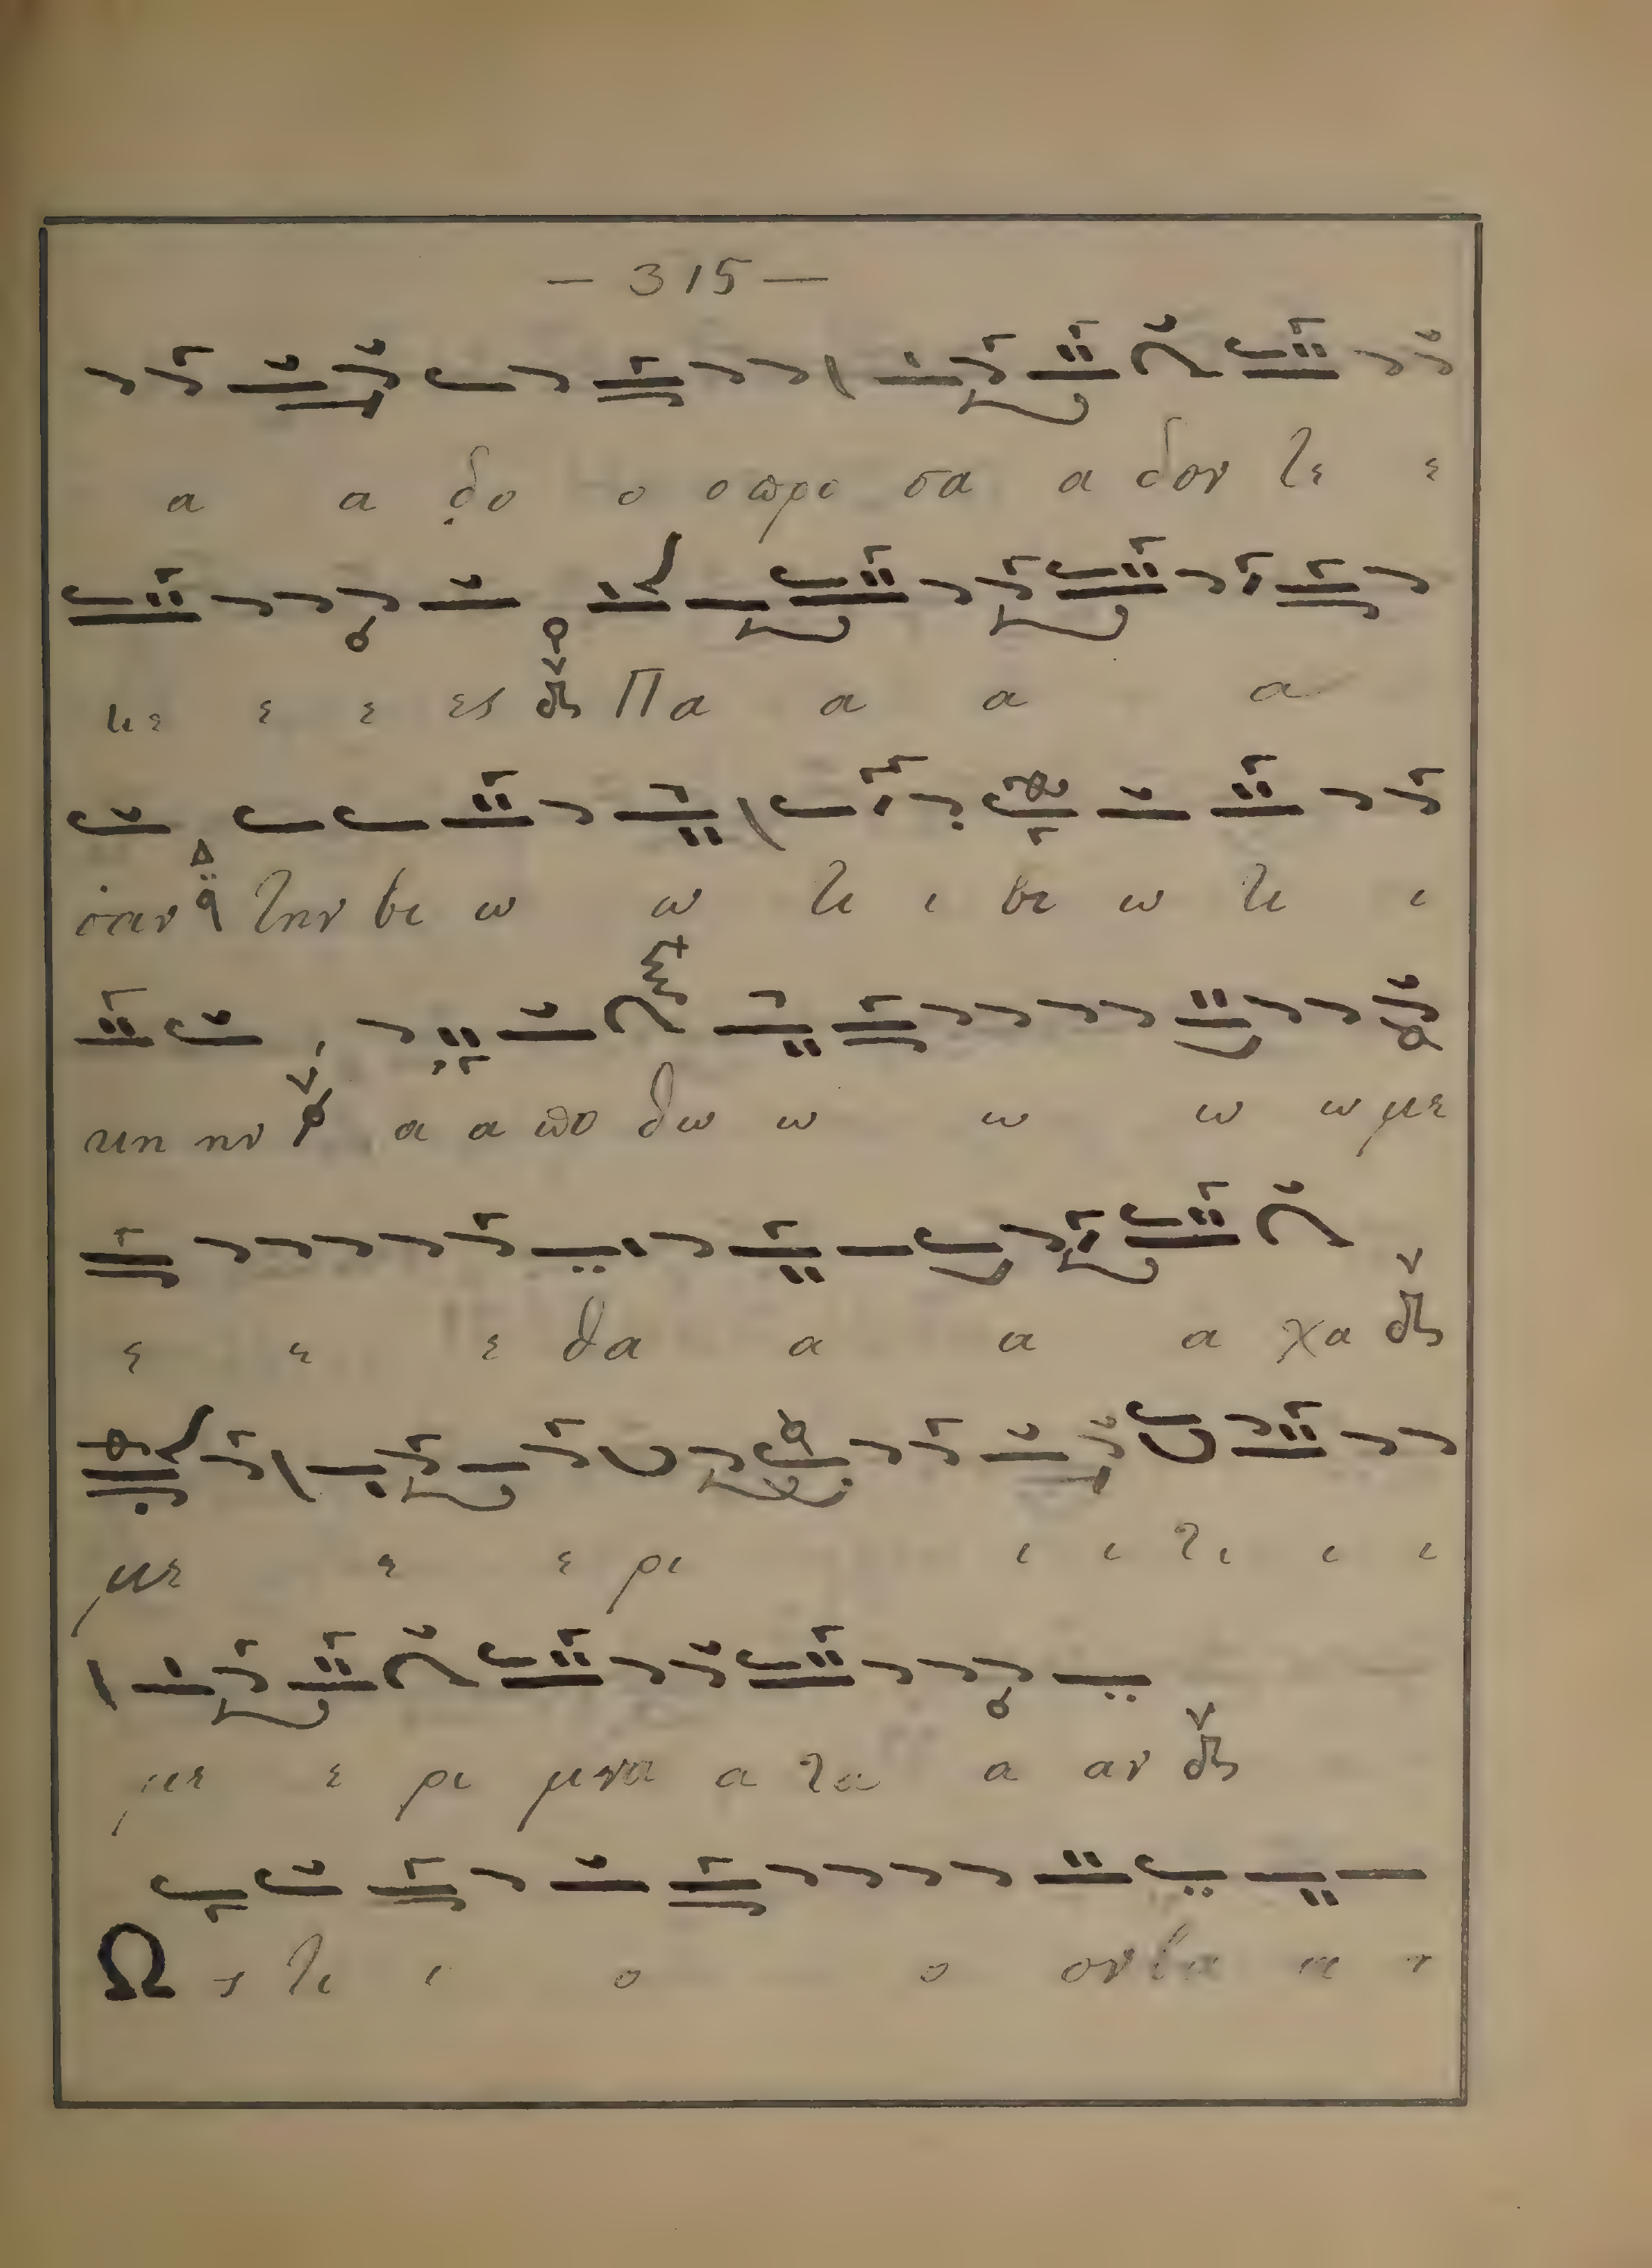 — 315 —
α α δο ο ο προ σα α δον τε ε
κε ε ε ες Πα α α α
σαν την βι ω ω τι ι βι ω τι ι
κη ην α α πο θω ω ω ω ω με
ε ε ε θα α α α χα
με ε ε ρι ι ι τι ι ι
με ε ρι μνα α τα α αν
Ω ς τι ι ο ο ον βα α